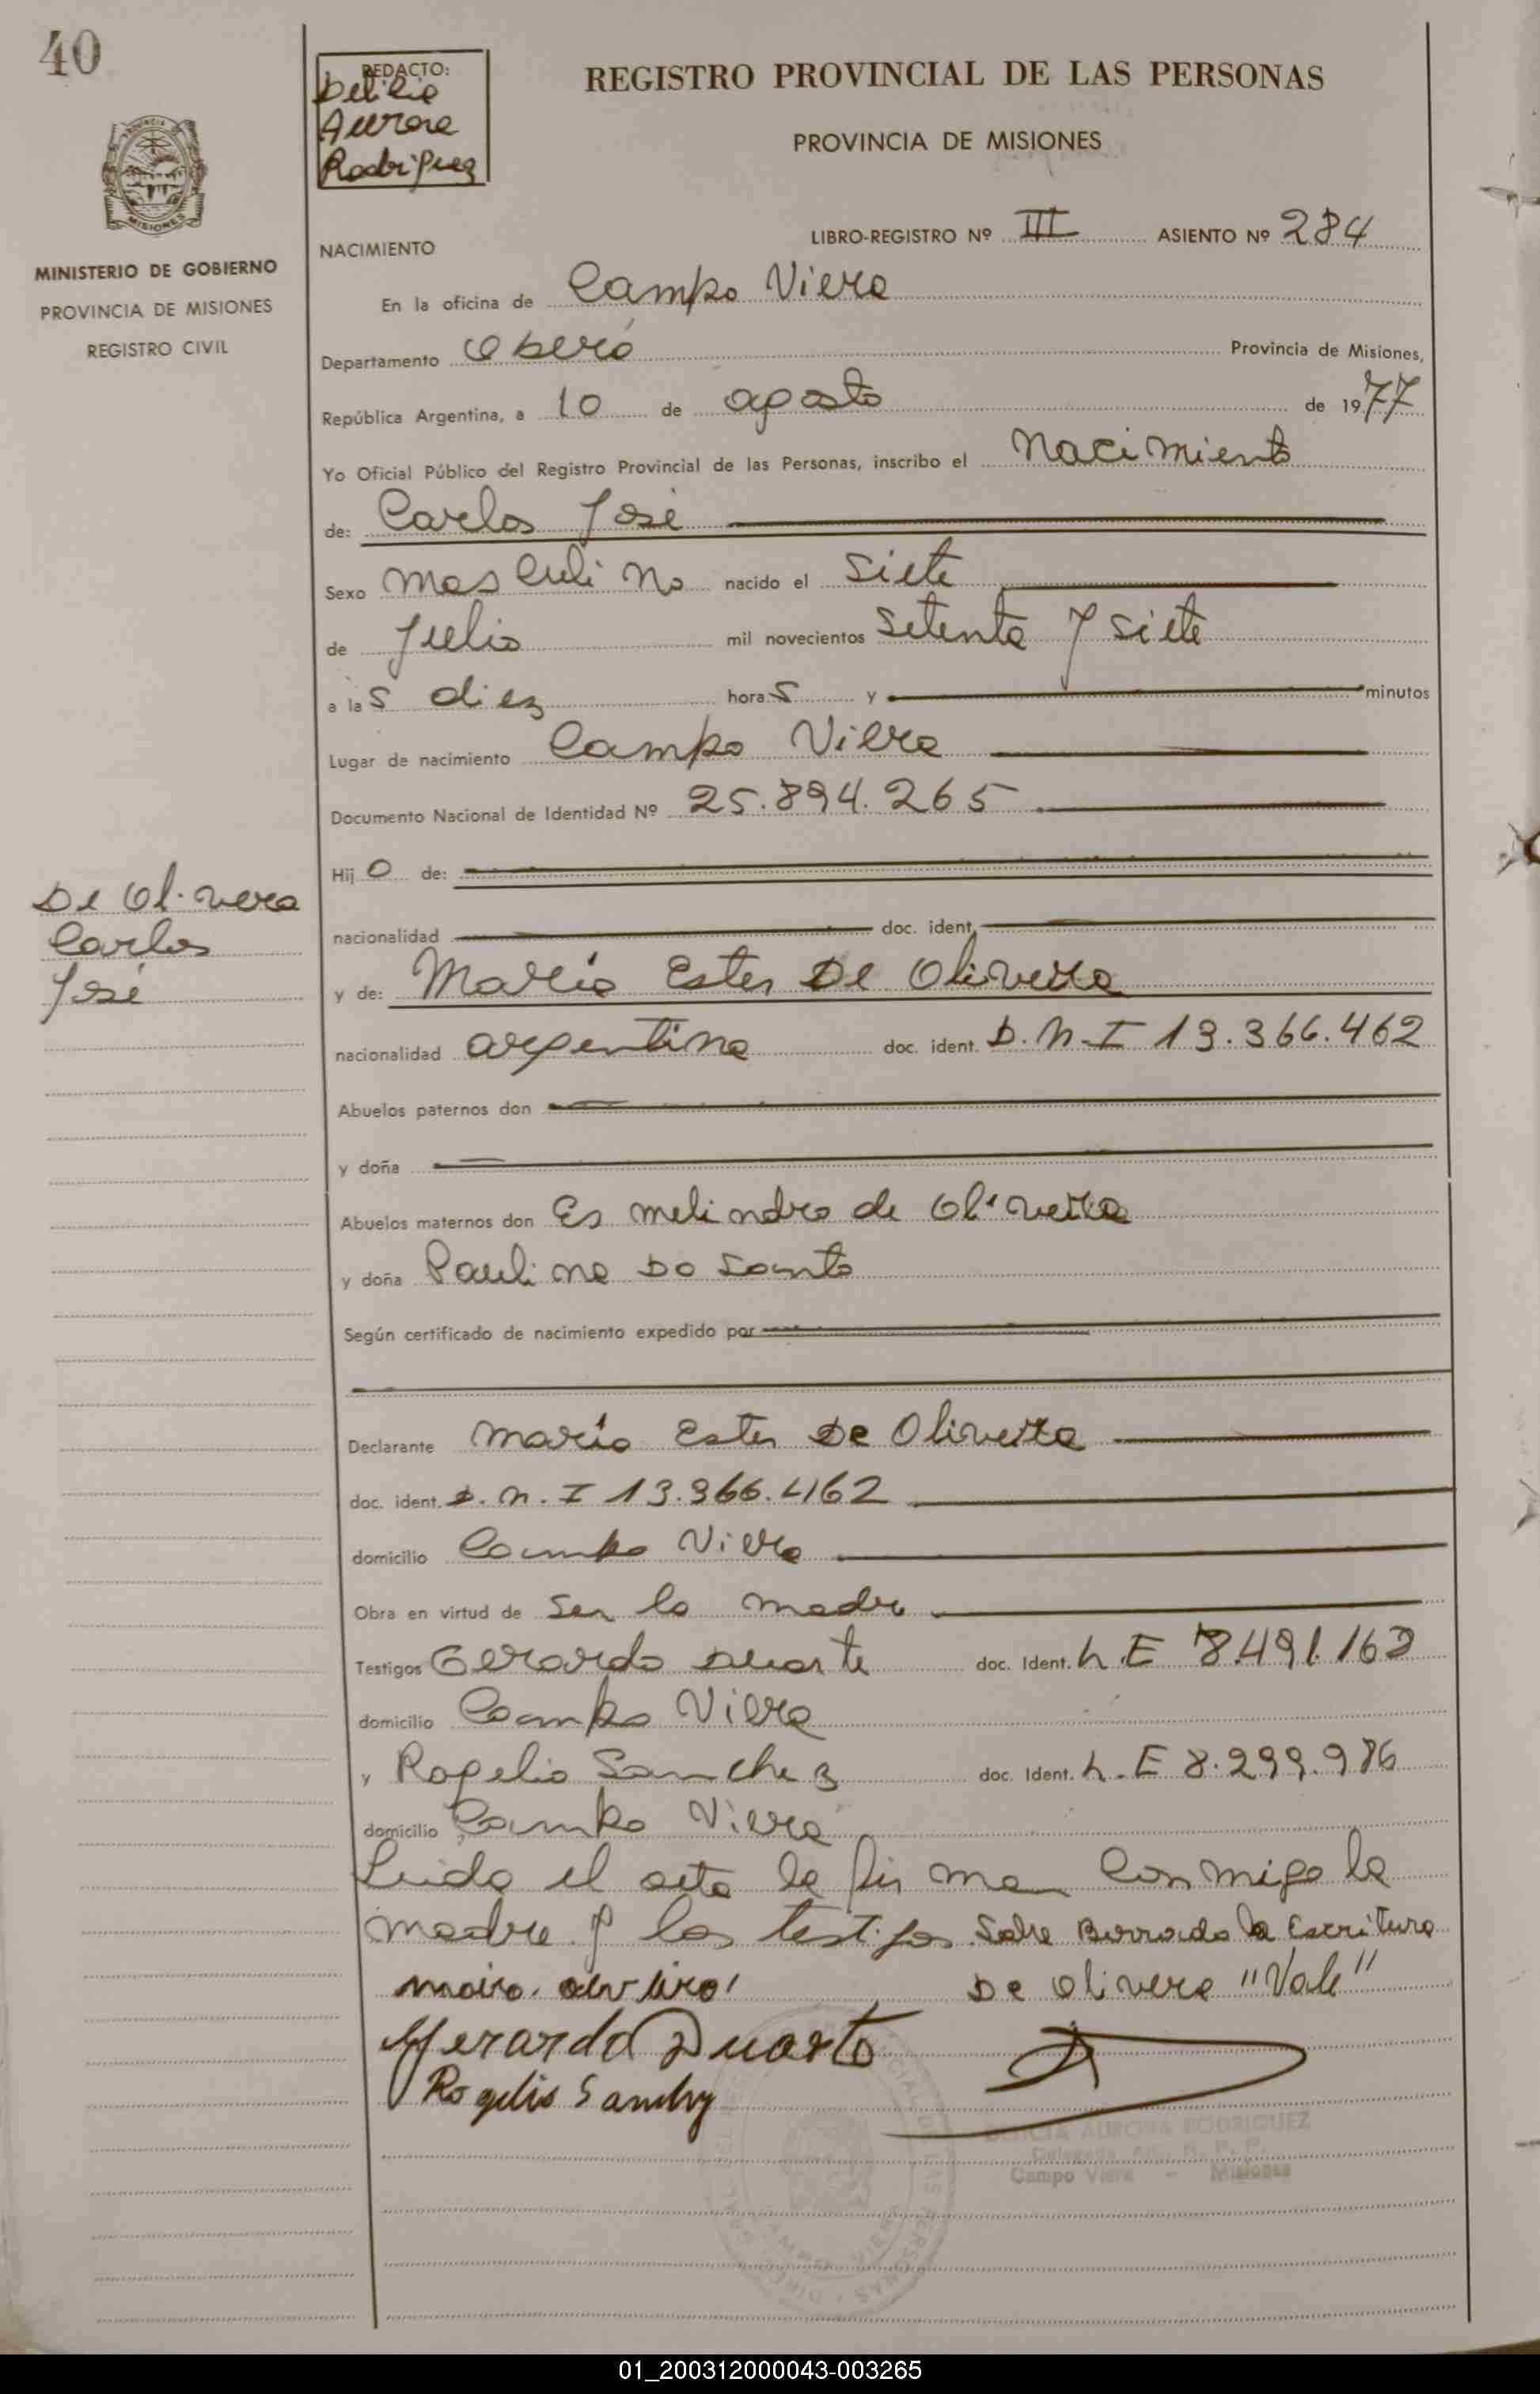 40
REDACTO:
Delicia
Aurora
Rodriguez
REGISTRO PROVINCIAL DE LAS PERSONAS
PROVINCIA DE MISIONES
MISIONES
MINISTERIO DE GOBIERNO
PROVINCIA DE MISIONES
REGISTRO CIVIL
LIBRO-REGISTRO Nº III ASIENTO Nº 284
NACIMIENTO
En la oficina de Campo Viera
Departamento Oberá Provincia de Misiones,
República Argentina, a 10 de agosto de 1977
Yo Oficial Público del Registro Provincial de las Personas, inscribo el Nacimiento
de: Carlos José
Sexo masculino nacido el siete
de Julio mil novecientos setenta y siete
a las diez horas y minutos
Lugar de nacimiento Campo Viera
Documento Nacional de Identidad Nº 25.894.265
Hijo de:
De Olivera
Carlos
José
nacionalidad doc. ident.
y de: María Ester De Olivera
nacionalidad argentina doc. ident. D.N.I 13.366.462
Abuelos paternos don
y doña
Abuelos maternos don Esmelindro de Olivera
y doña Paulina Do Santo
Según certificado de nacimiento expedido por
Declarante María Ester De Olivera
doc. ident. D.N.I 13.366.462
domicilio Campo Viera
Obra en virtud de ser la madre
Testigos Gerardo Duarte doc. Ident. L.E 8.491.163
domicilio Campo Viera
y Rogelio Sanchez doc. Ident. L.E 8.299.986
domicilio Campo Viera
Leida el acta la firman conmigo la
madre y los testigos Sobre Borrado la Escritura
De Olivera "Vale"
Gerardo Duarte
Rogelio Sanchez
DELICIA AURORA RODRIGUEZ
Campo Viera - Misiones
01_200312000043-003265